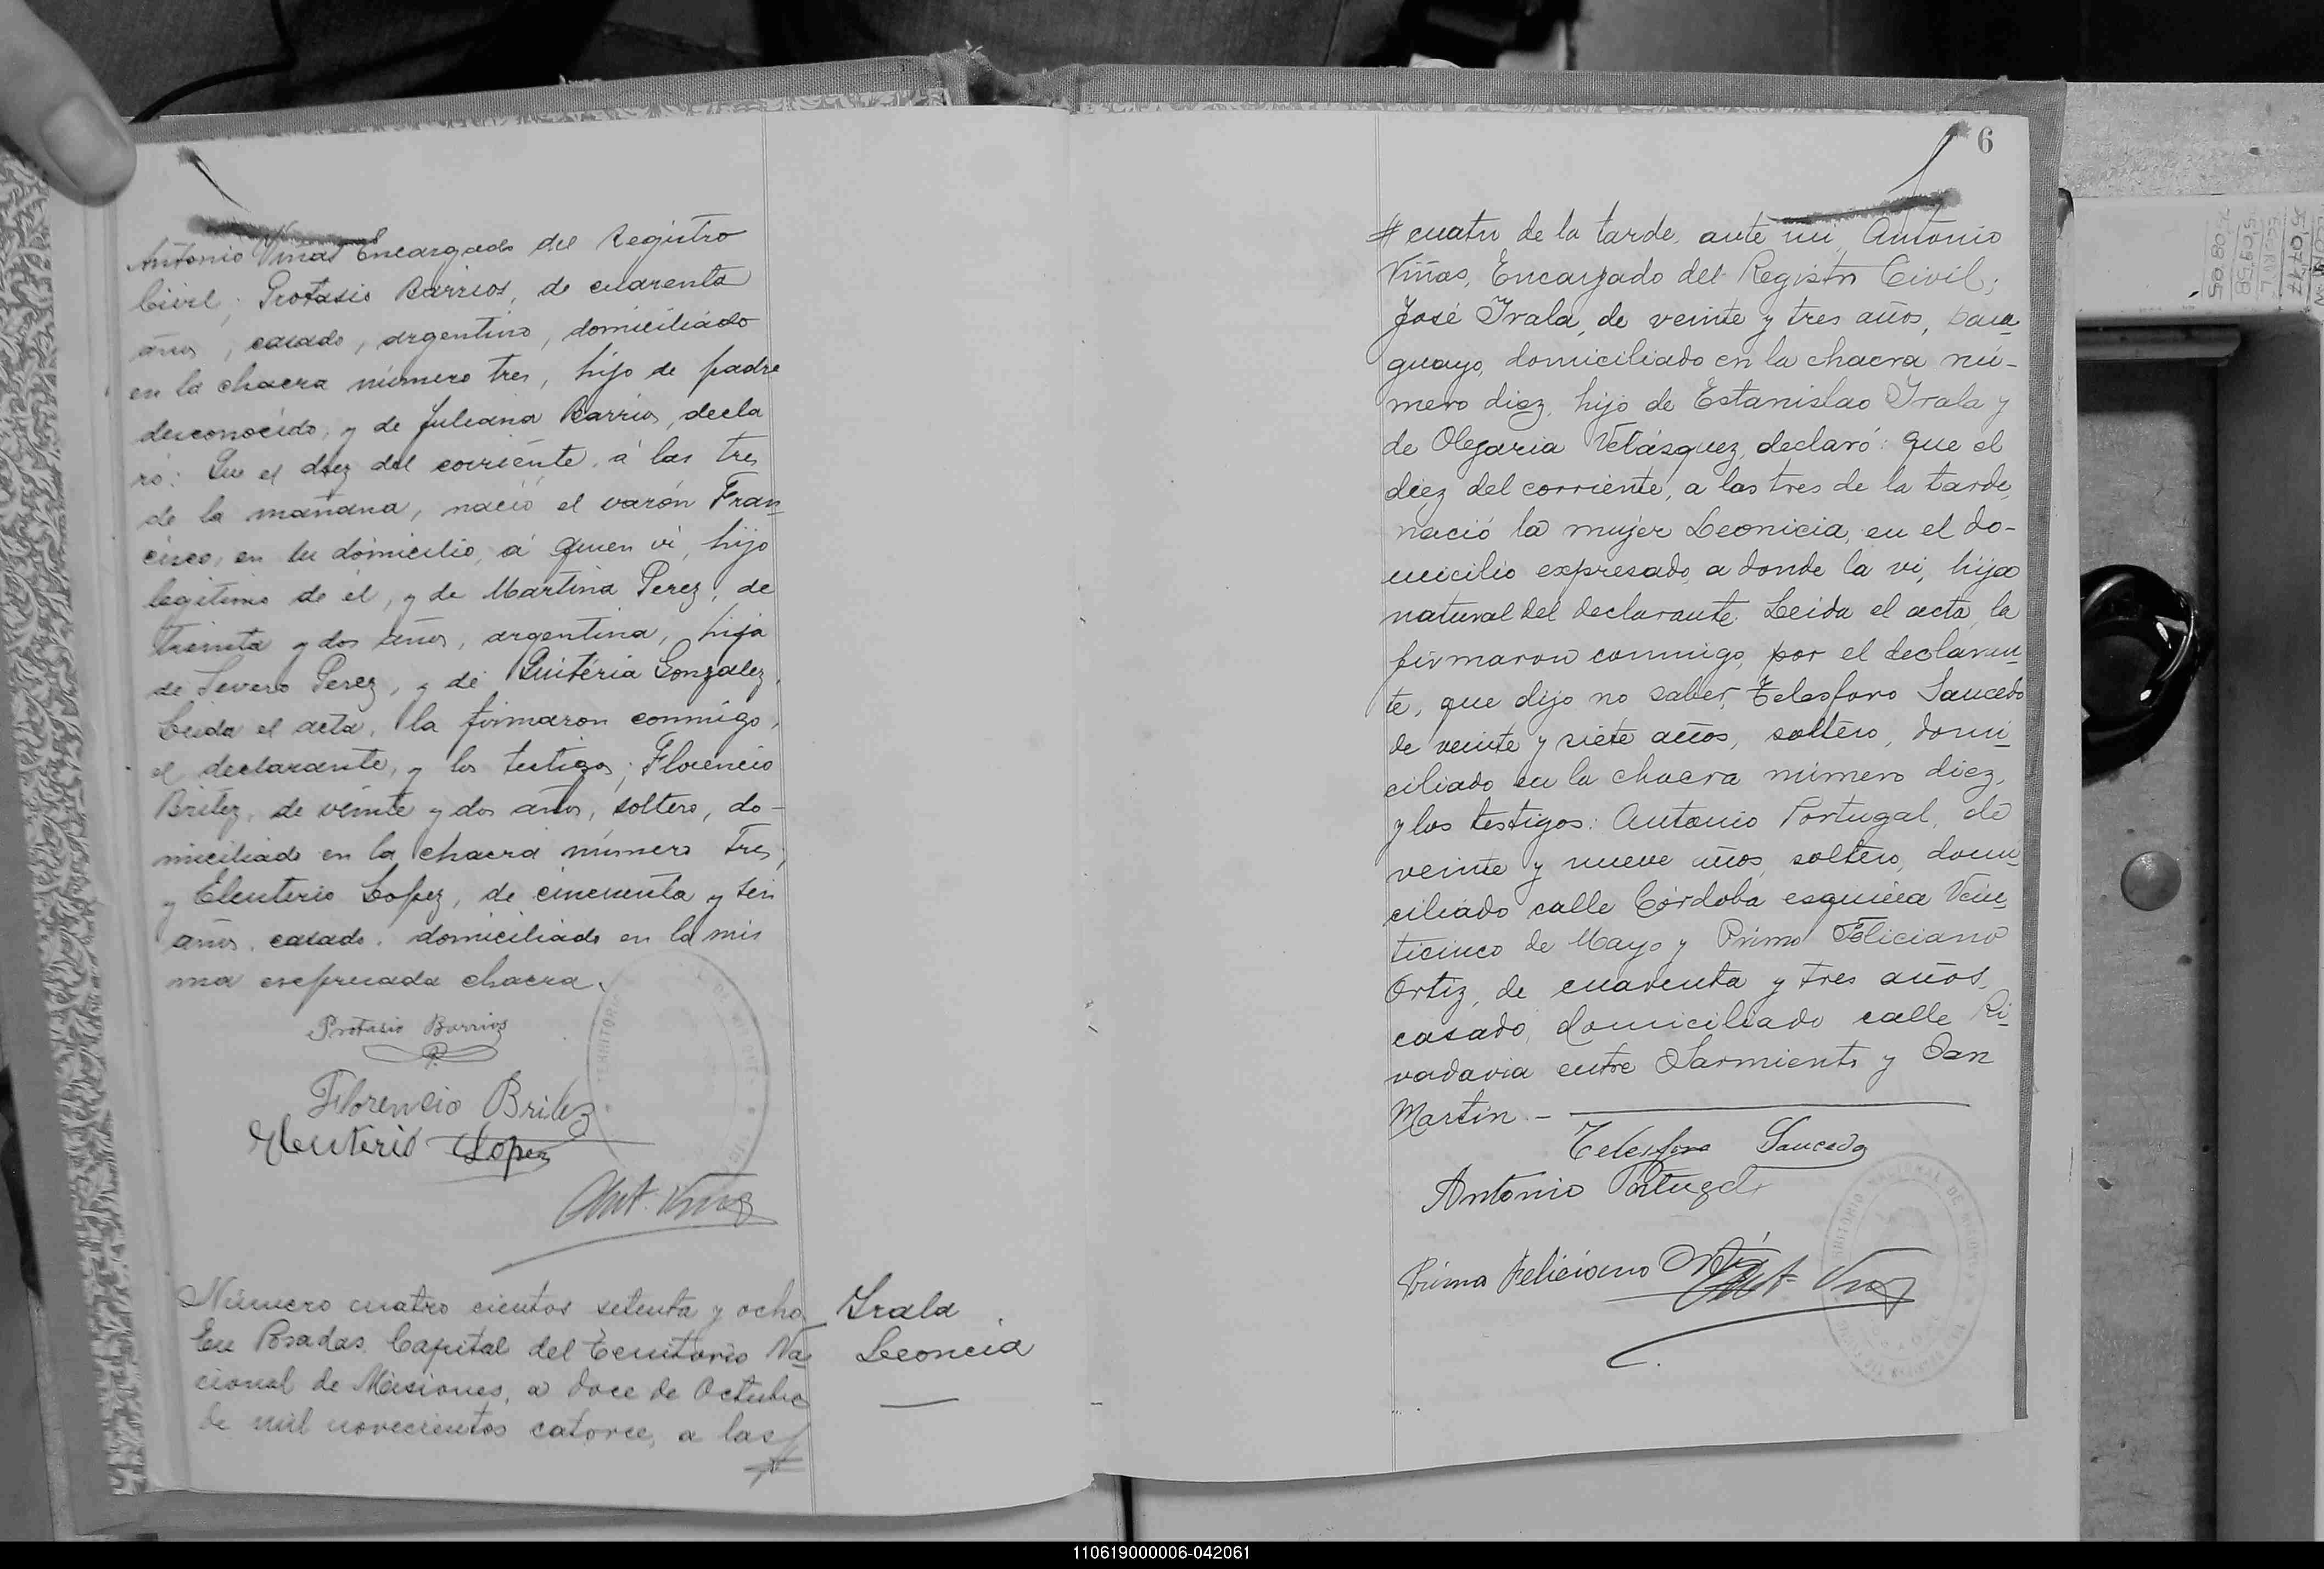 Antonio Viñas Encargado del Registro
Civil; Protasio Barrios, de cuarenta
años, casado, argentino, domiciliado
en la chacra número tres, hijo de padre
desconocido, y de Juliana Barrios, decla
ró: Que el diez del corriente, á las tres
de la mañana, nació el varón Fran
cisco, en su domicilio, á quien vi, hijo
legitimo de él, y de Martina Perez, de
treinta y dos años, argentina, hija
de Severo Perez, y de Quitéria Gonzalez,
Leida el acta, la firmaron conmigo,
el declarante, y los testigos; Florencio
Britez, de veinte y dos años, soltero, do-
miciliado en la chacra número tres,
y Eleuterio Lopez, de cincuenta y seis
años, casado, domiciliado en la mis
ma expresada chacra.
Protasio Barrios
Florencio Britez
Eleuterio Lopez
Ant. Viñas
Número cuatro cientos setenta y ocho
En Posadas, Capital del Territorio Na
cional de Misiones, a doce de Octubre
de mil novecientos catorce, a las
#
Irala
Leoncia
6
# cuatro de la tarde, ante mi, Antonio
Viñas, Encargado del Registro Civil;
José Irala, de veinte y tres años, para
guayo, domiciliado en la chacra nú-
mero diez, hijo de Estanislao Irala y
de Olegaria Velásquez, declaró: que el
diez del corriente, a las tres de la tarde,
nació la mujer Leonicia, en el do-
micilio expresado, a donde la vi, hija
natural del declarante. Leida el acta, la
firmaron conmigo, por el declaran
te, que dijo no saber, Telesforo Saucedo
de veinte y siete años, soltero, domi
ciliado en la chacra número diez,
y los testigos: Antonio Portugal, de
veinte y nueve años, soltero, domi
ciliado calle Córdoba esquina Vein
ticinco de Mayo y Primo Feliciano
Ortiz, de cuarenta y tres años,
casado, domiciliado calle Ri
vadavia entre Sarmiento y San
Martin.-
Telesforo Saucedo
Antonio Portugal
Primo Feliciano Ortiz
Ant. Viñas
110619000006-042061